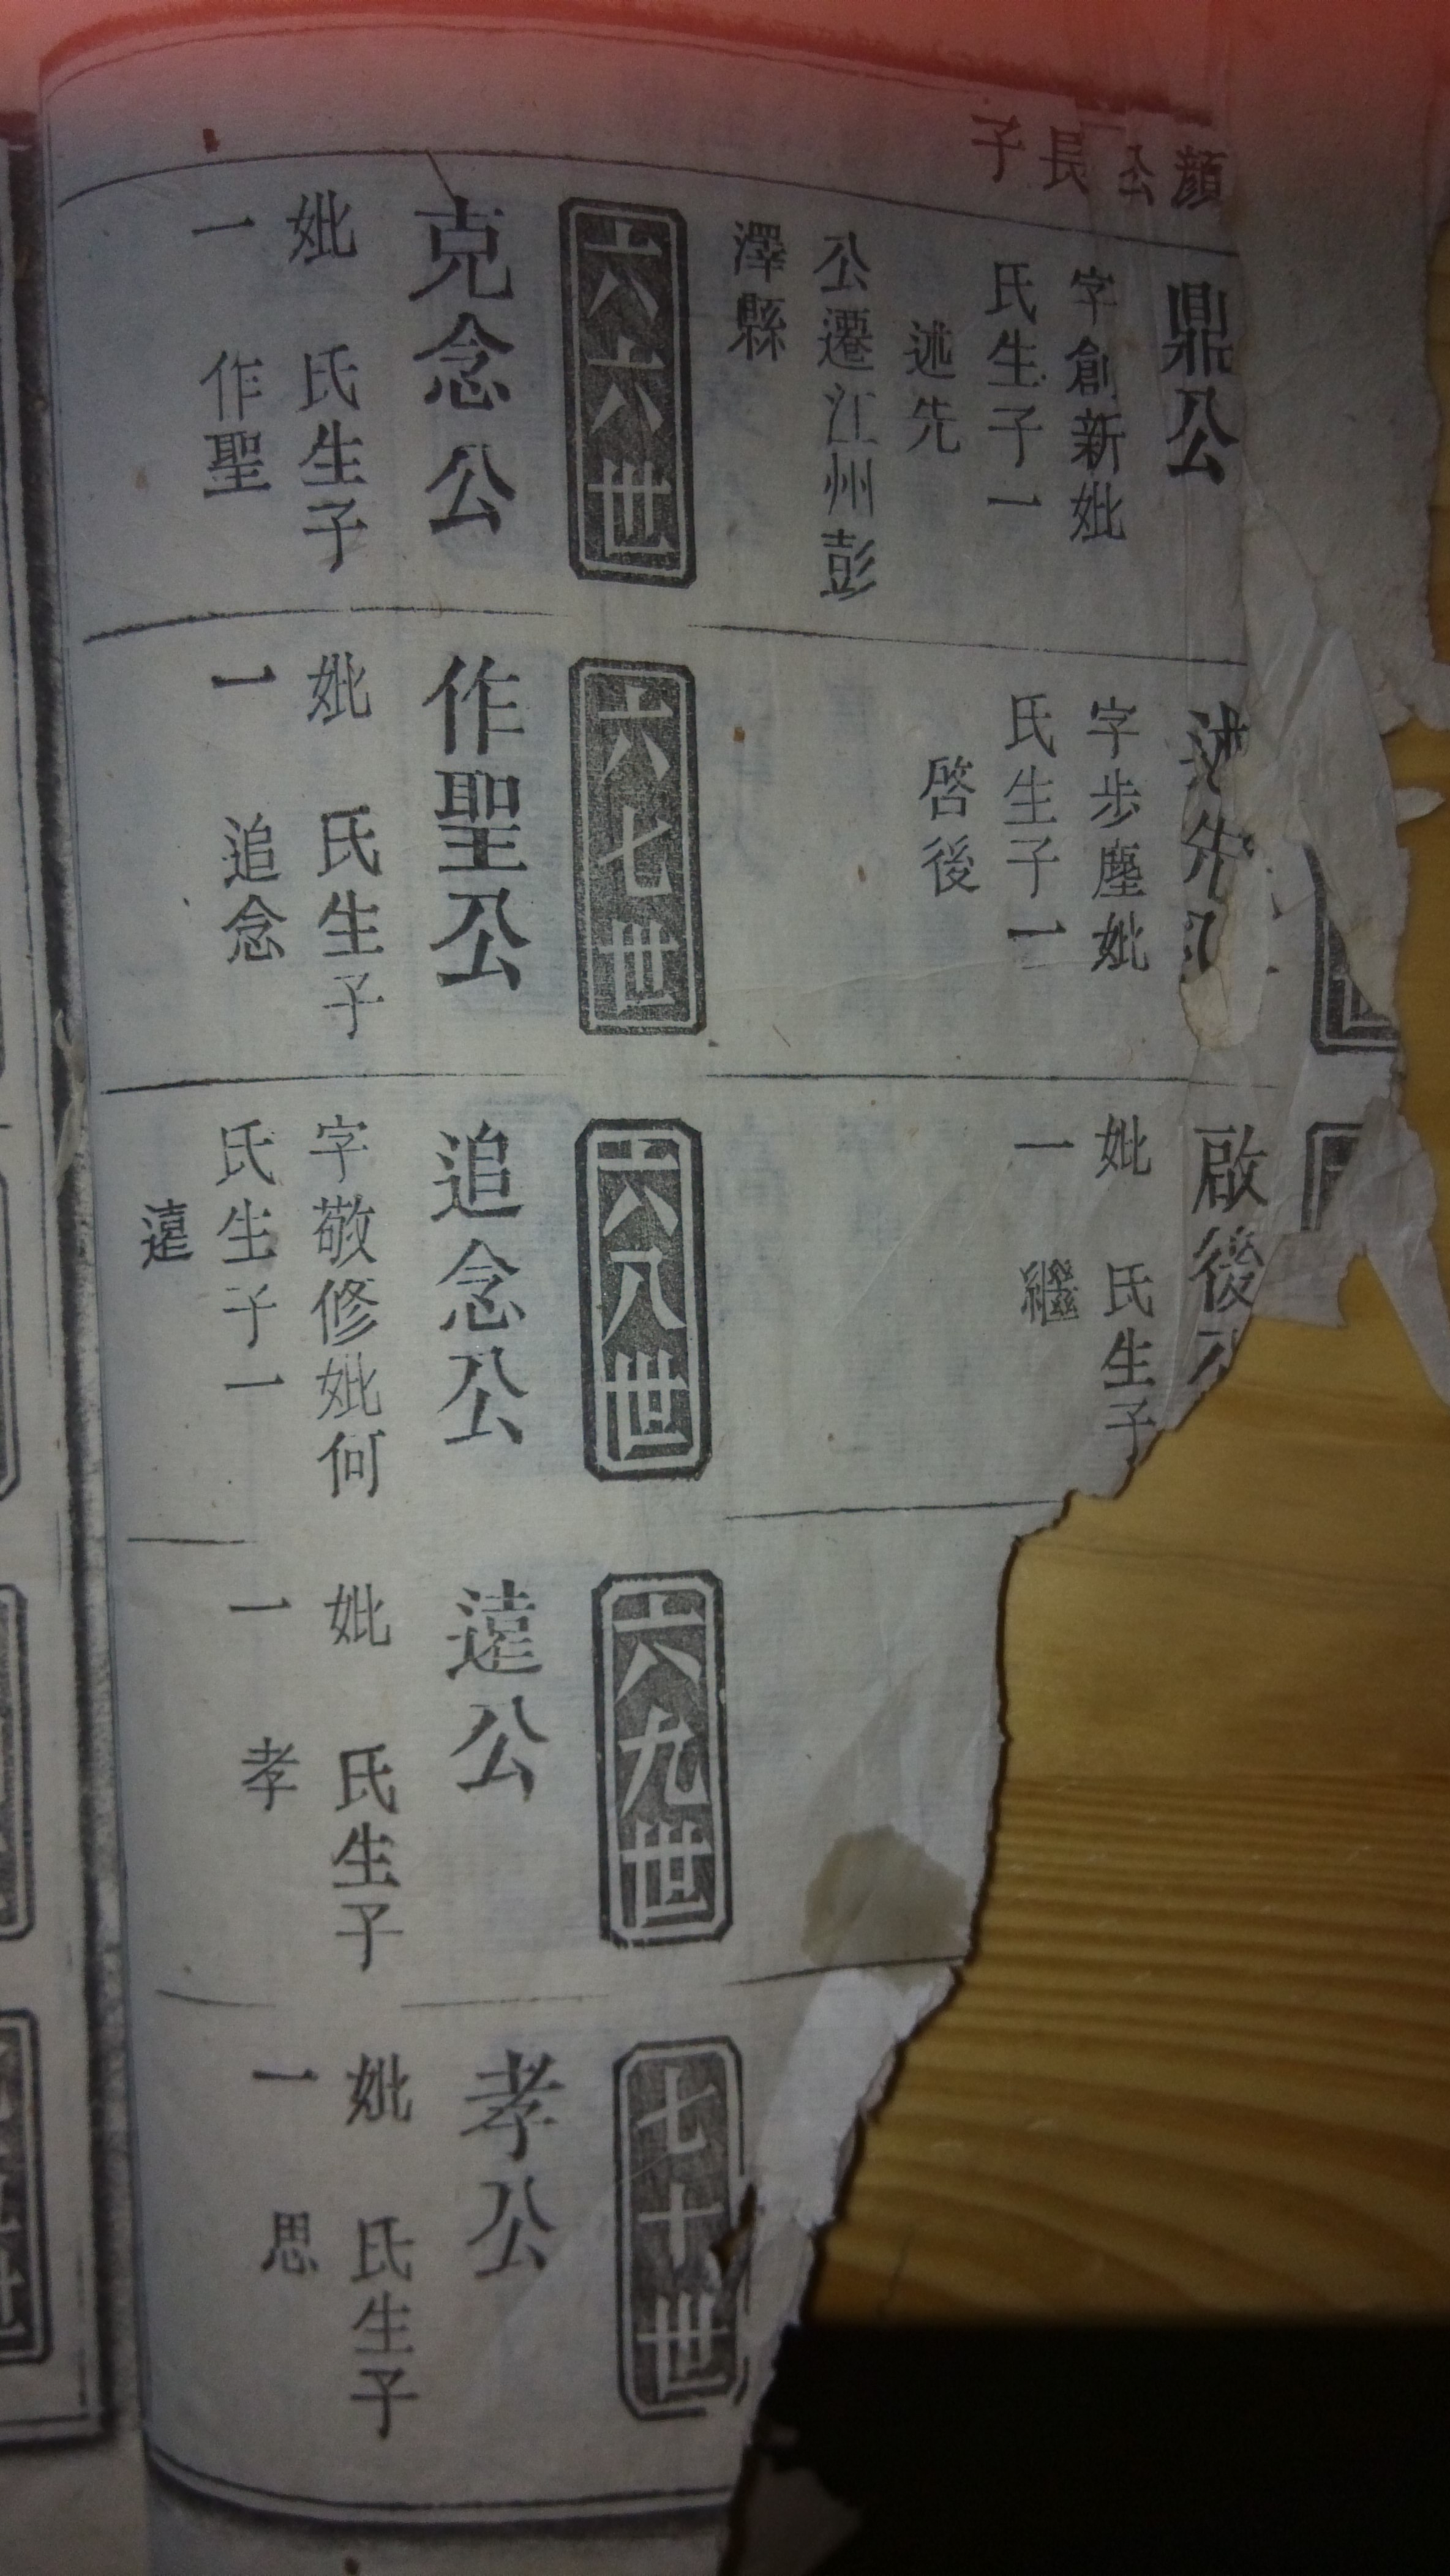 顏
長
子
鼎公
字創新妣
氏生子一
述先
公遷江州彭
澤縣
述先
字步塵妣
氏生子一
啓後
啟後
妣 氏生子
一 繼
六六世
克念公
妣 氏生子
一 作聖
六七世
作聖公
妣 氏生子
一 追念
六八世
追念公
字敬修妣何
氏生子一
遠
六九世
遠公
妣 氏生子
一 孝
七十世
孝公
妣 氏生子
一 思